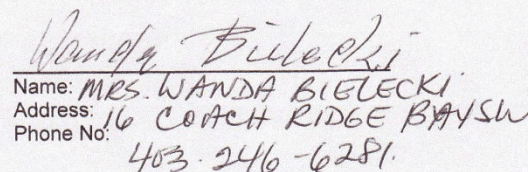 Wanda Bielecki
Name: MRS. WANDA BIELECKI.
Address: 16 COACH RIDGE BAY SW
Phone No:
403-246-6281.